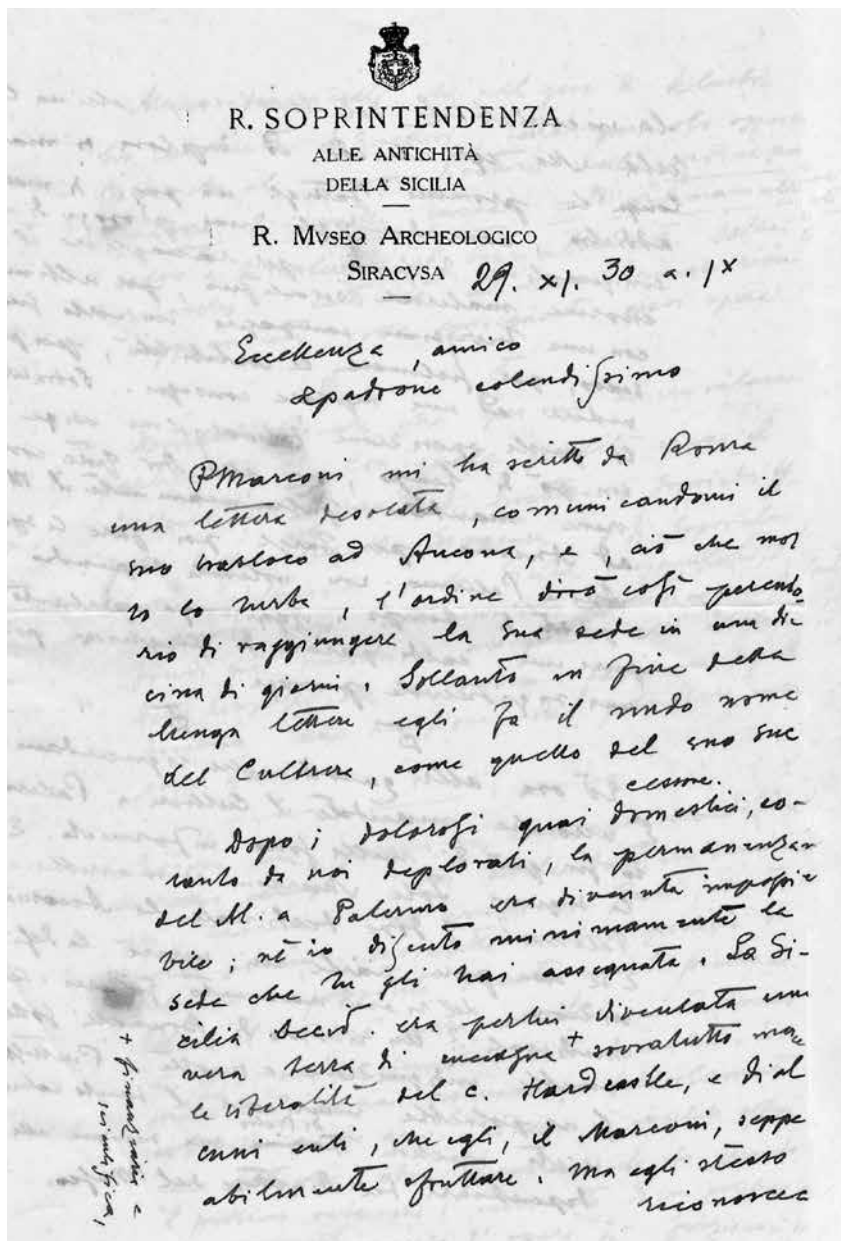 R. SOPRINTENDENZA
ALLE ANTICHITÀ
DELLA SICILIA
R. MVSEO ARCHEOLOGICO
SIRACVSA 29. XI. 30 a. IX
Eccellenza, amico
e padrone colendissimo
P Marconi mi ha scritto da Roma
una lettera desolata, comunicandomi il
suo trasloco ad Ancona, e, ciò che mol
to lo turba, l'ordine dirò così perento
rio di raggiungere la sua sede in una die
cina di giorni. Soltanto in fine della
lunga lettera egli fa il nudo nome
del Cultrera, come quello del suo suc
cessore.
Dopo i dolorosi guai domestici, co-
tanto da noi deplorati, la permanenza
del M. a Palermo era diventata impossi
bile; nè io discuto minimamente la
sede che tu gli hai assegnata. La Si-
cilia occid. era perlui diventata una
vera terra di cuccagna + sovratutto
le liberalità del c. Hardcastle, e di al
cuni enti, che egli, il Marconi, seppe
abilmente sfruttare. Ma egli stesso
riconosce
+ finanziaria e
scientifica,